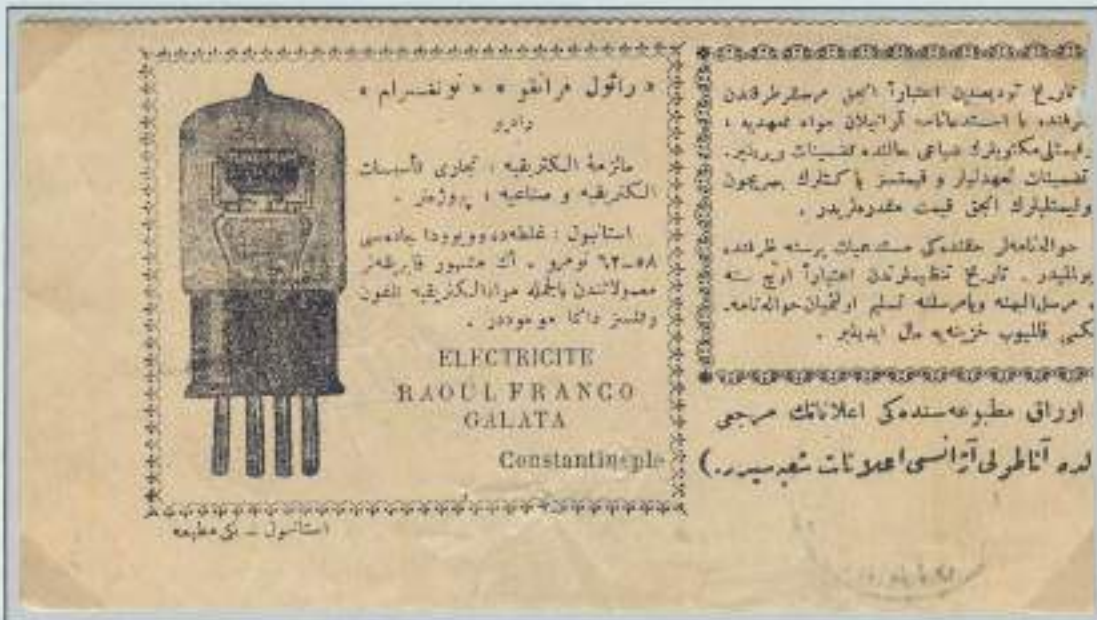 « رائول فرانقو » « تونغسرام »
رادیو
مالزمهٔ الکتریقیه ، تجاری تأسیسات
الکتریقیه و صناعیه ، پروژه‌لر .
استانبول : غلطه‌ده وویوودا جاده‌سی
٥٨-٦٢ نومرو . اك مشهور فابریقه‌لر
معمولاتندن بالجمله مواد الکتریقیه تلفون
وتلسز دائما موجوددر .
ELECTRICITE
RAOUL FRANCO
GALATA
Constantinople
استانبول – یکی مطبعه
تاریخ تودیعندن اعتباراً آنجق مرسلر طرفندن
طرفنده با استدعانامه آرانیلان مواد تعهدیه ،
وقیمتلی مکتوبلرك ضیاعی حالنده تضمینات ویریلیر.
تضمینات تعهدلیلر و قیمتسز پاکتلرك
وقیمتلیلرك آنجق قیمت مقدره‌لریدر .
حواله‌نامه‌لر حقنده‌کی مستدعیات بر سنه ظرفنده
تاریخ تنظیملرندن اعتباراً اوچ سنه
مرسل الیهنه ویا مرسلنه تسلیم اولنمیان حواله‌نامه
قالیوب خزینه‌یه مال ایدیلیر .
اوراق مطبوعه‌سنده‌کی اعلاناتك مرجعی
آناطولی آژانسی اعلانات شعبه‌سیدر.)